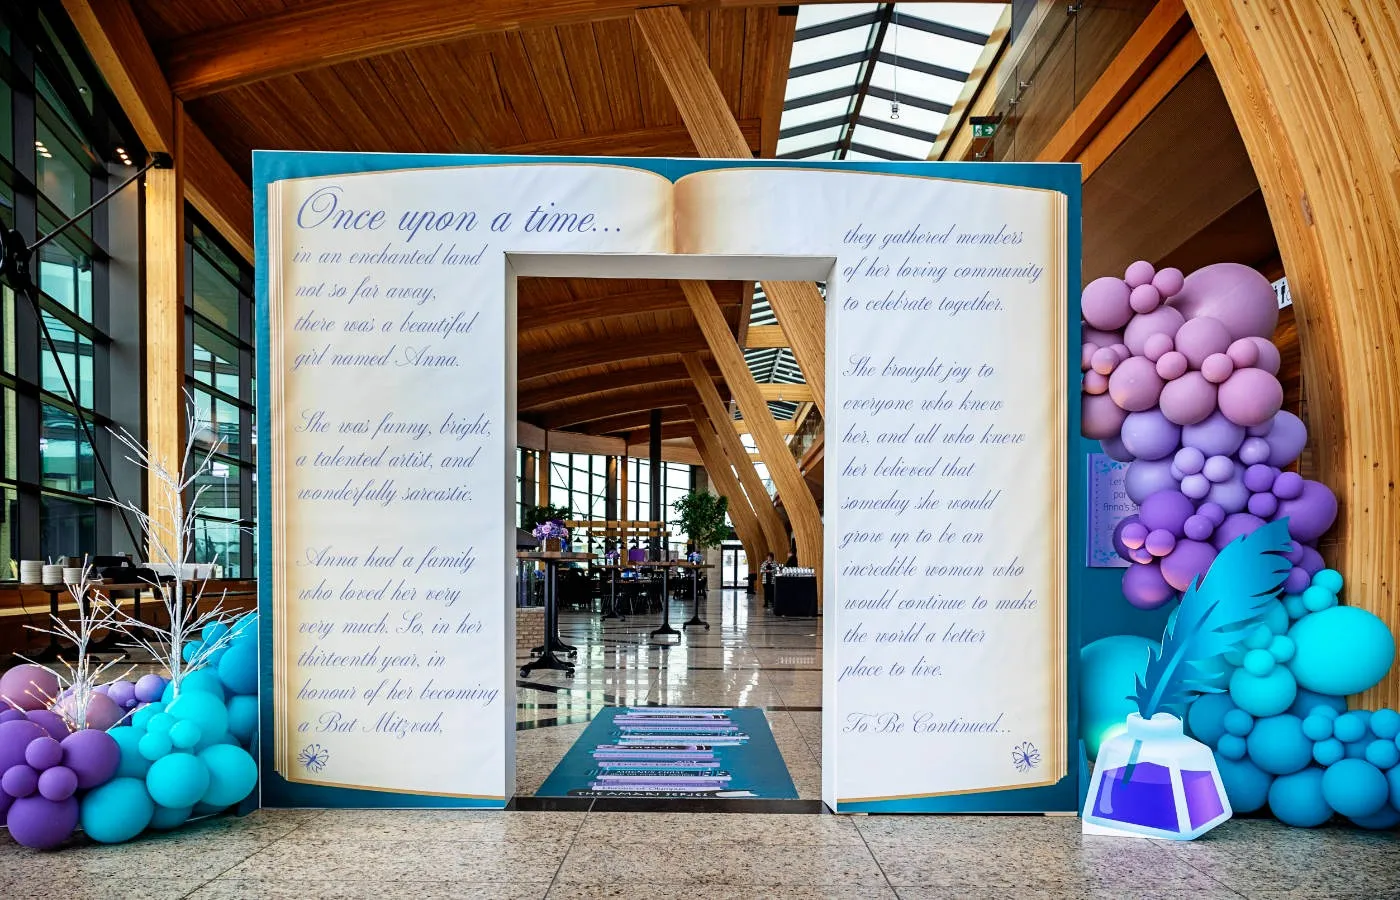 Once upon a time...
in an enchanted land
not so far away,
there was a beautiful
girl named Anna.
She was funny, bright,
a talented artist, and
wonderfully sarcastic.
Anna had a family
who loved her very
very much. So, in her
thirteenth year, in
honour of her becoming
a Bat Mitzvah,
they gathered members
of her loving community
to celebrate together.
She brought joy to
everyone who knew
her, and all who knew
her believed that
someday she would
grow up to be an
incredible woman who
would continue to make
the world a better
place to live.
To Be Continued...
Anna's
THE AMARI SERIES